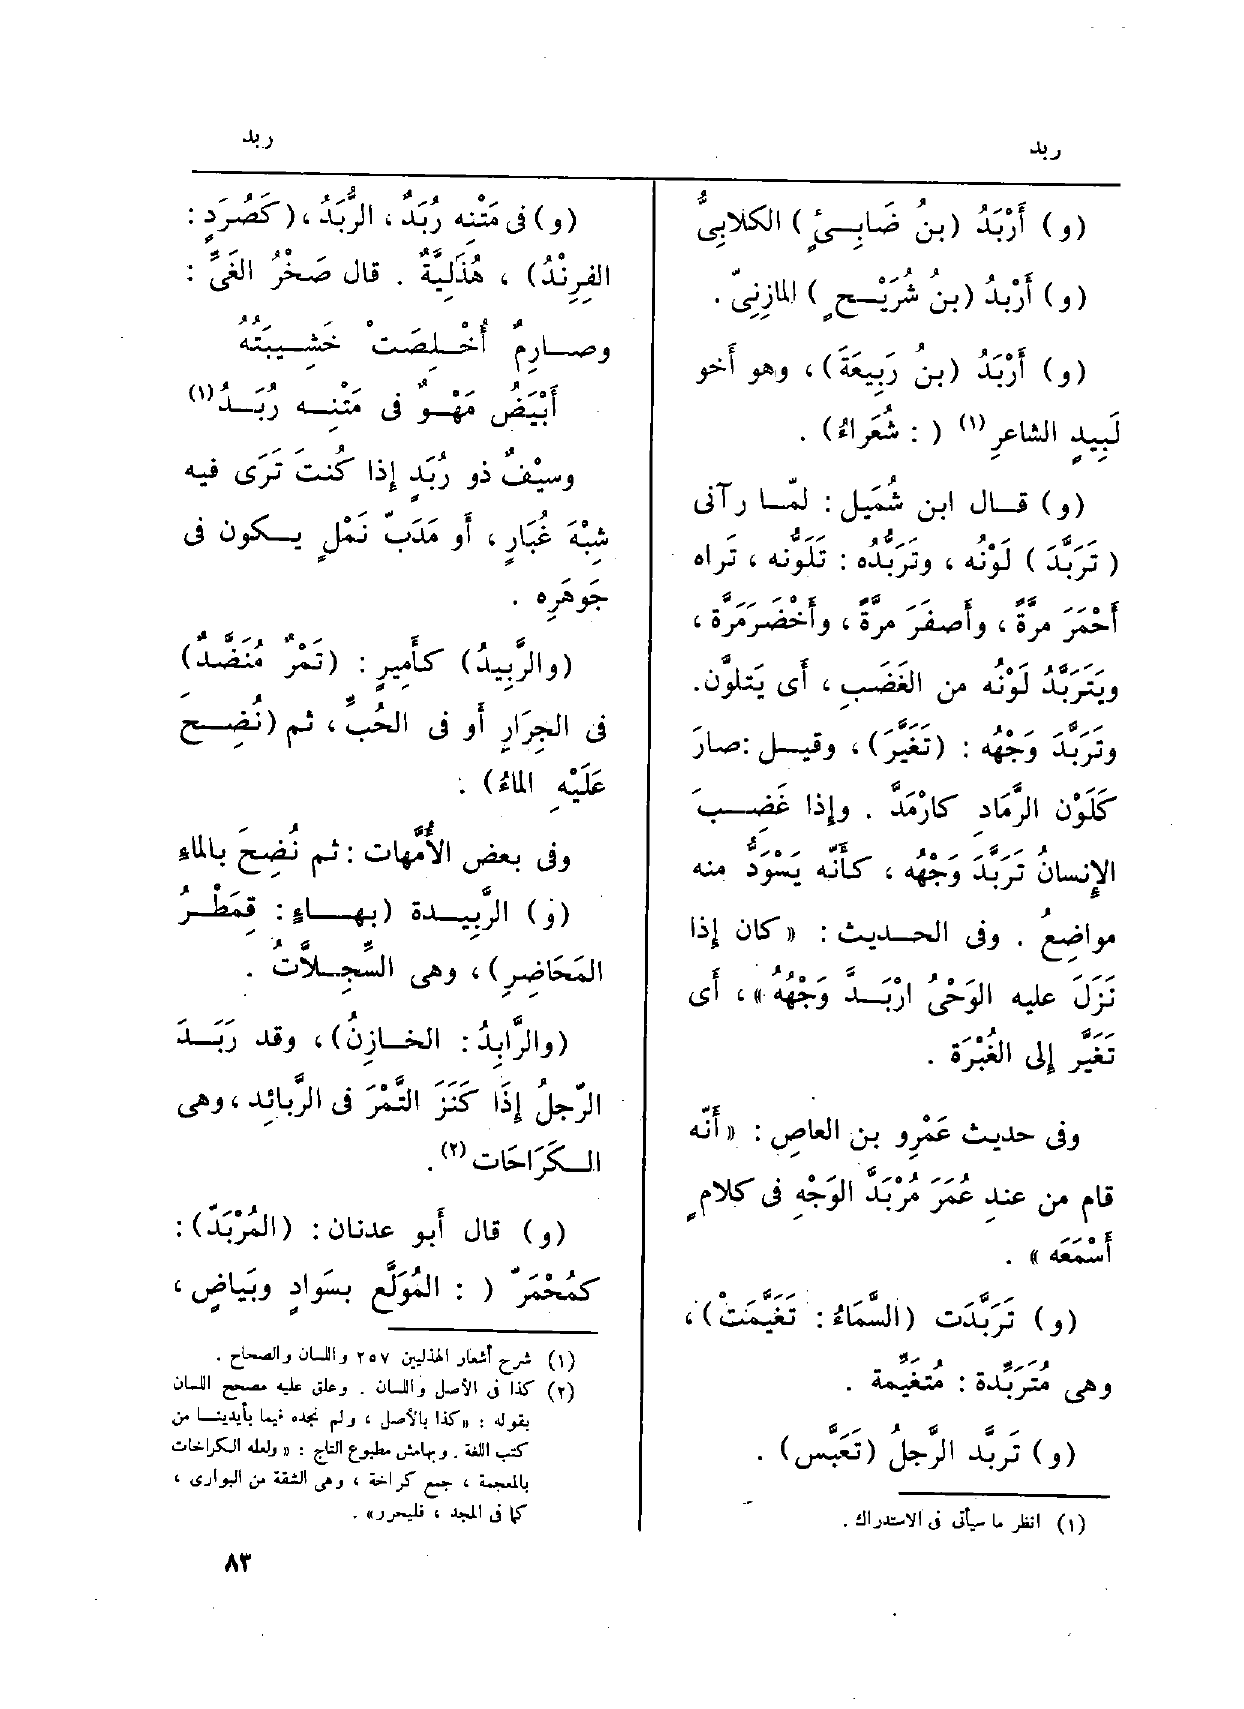 ربد
ربد
(و) أَرْبَدُ (بنُ ضَابِـئٍ) الكلابِىُّ
(و) أَرْبدُ (بنُ شُرَيْـحٍ) المازِنِىّ .
(و) أَرْبَدُ (بن رَبِيعَةَ) ، وهو أَخو
لَبِيدٍ الشاعرِ (١) ( : شُعَراءُ) .
(و) قـال ابن شُمَيل : لمّـا رآنى
( تَرَبَّدَ ) لَوْنُه ، وتَرَبُّدُه : تَلَوُّنه ، تَراه
أَحْمَرَ مرَّةً ، وأَصفَرَ مرَّةً ، وأَخْضَرَ مَرَّة ،
ويَتَرَبَّدُ لَوْنُه من الغَضَبِ ، أَى يَتلَوَّن.
وتَرَبَّدَ وَجْهُه : (تَغَيَّرَ) ، وقيـل :صارَ
كَلَوْن الرَّمادِ كارْمَدَّ . وإِذا غَضِـبَ
الإِنسانُ تَرَبَّدَ وَجْهُه ، كأَنّه يَسْوَدُّ منه
مواضِعُ . وفى الحـديث : « كان إِذا
نَزَلَ عليه الوَحْىُ ارْبَـدَّ وَجْهُهُ » ، أَى
تَغَيَّر إِلى الغُبْرَة .
وفى حديث عَمْرِو بن العاصِ : « أَنّه
قام من عندِ عُمَرَ مُرْبَدَّ الوَجْهِ فى كلامٍ
أَسْمَعَه » .
(و) تَرَبَّدَت (السَّماءُ : تَغَيَّمَتْ) ،
وهى مُتَرَبِّدة : مُتَغَيِّمة .
(و) تَربَّد الرَّجلُ (تَعَبَّس) .
(١) انظر ما سيأتى فى الاستدراك .
(و) فى مَتْنِه رُبَدٌ ، الرُّبَدُ ، (كَصُرَدٍ :
الفِرِنْدُ) ، هُذَلِيَّةٌ . قال صَخْرُ الغَىِّ :
وصـارِمٌ أُخْـلِصَتْ خَشِيـبَتُهُ
أَبْيَضُ مَهْـوٌ فى مَتْنِـه رُبَـدُ (١)
وسيْفٌ ذو رُبَدٍ إِذا كُنتَ تَرَى فيه
شِبْهَ غُبَارٍ ، أَو مَدَبّ نَمْلٍ يـكون فى
جَوهَرِه .
(والرَّبِيدُ) كأَمِيرٍ : (تَمْرٌ مُنَضَّدٌ)
فى الجِرَارِ أَو فى الحُبِّ ، ثم (نُضِـحَ
عَلَيْهِ الماءُ) .
وفى بعض الأُمَّهات : ثم نُضِحَ بالماءِ
(و) الرَّبِيـدة (بهـاءٍ : قِمَطْـرُ
المَحَاضِرِ) ، وهى السِّجِـلاَّتُ .
(والرَّابِدُ : الخـازِنُ) ، وقد رَبَـدَ
الرّجلُ إِذَا كَنَزَ التَّمْرَ فى الرَّبائد ، وهى
الـكَرَاحَات (٢) .
(و) قال أَبو عدنان : (المُرْبَدّ) :
كمُحْمَرّ ( : المُوَلَّع بسَوادٍ وبَياضٍ ،
(١) شرح أشعار الهذليين ٢٥٧ واللسان والصحاح .
(٢) كذا فى الأصل واللسان . وعلق عليه مصحح اللسان
بقوله : «كذا بالأصل ، ولم نجده فيما بأيدينـا من
كتب اللغة . وبهامش مطبوع التاج : « ولعله الكراخات
بالمعجمة ، جمع كراخة ، وهى الشقة من البوارى ،
كما فى المجد ، فليحرر» .
٨٣